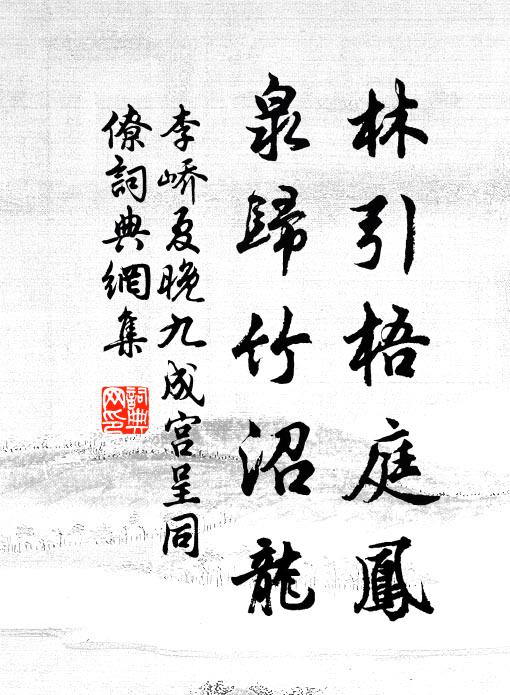 林引梧庭鳳
泉歸竹沼龍
李嶠夏晚九成宮呈同
僚詞典網集
詞典
网印